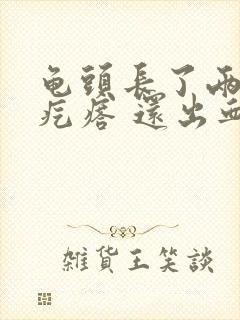 龟頭長了兩
疙瘩 還出
雜貨王笑談